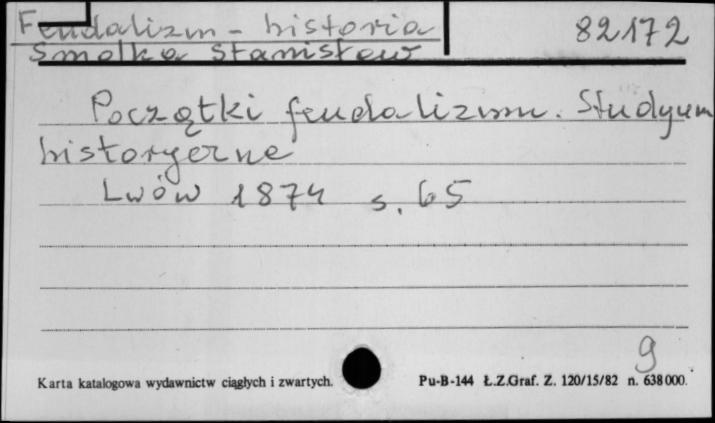 Feudalizm - historia 82172
Smolka Stanisław
Początki feudalizmu. Studyum
historyczne
Lwów 1874 s. 65
g
Karta katalogowa wydawnictw ciągłych i zwartych. Pu-B-144 Ł.Z.Graf. Z. 120/15/82 n. 638000.